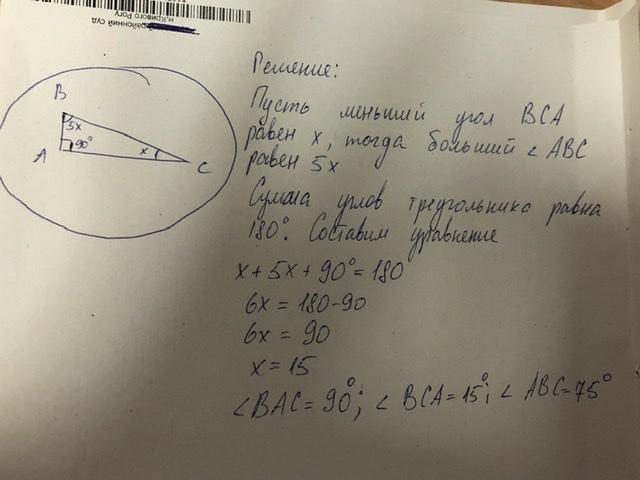 районний суд
м.Кривого Рогу
B
5x
A
90°
x
C
Решение:
Пусть меньший угол BCA
равен x, тогда больший ∠ ABC
равен 5x
Сумма углов треугольника равна
180°. Составим уравнение
x + 5x + 90° = 180
6x = 180-90
6x = 90
x = 15
∠BAC = 90°; ∠ BCA = 15°; ∠ ABC = 75°